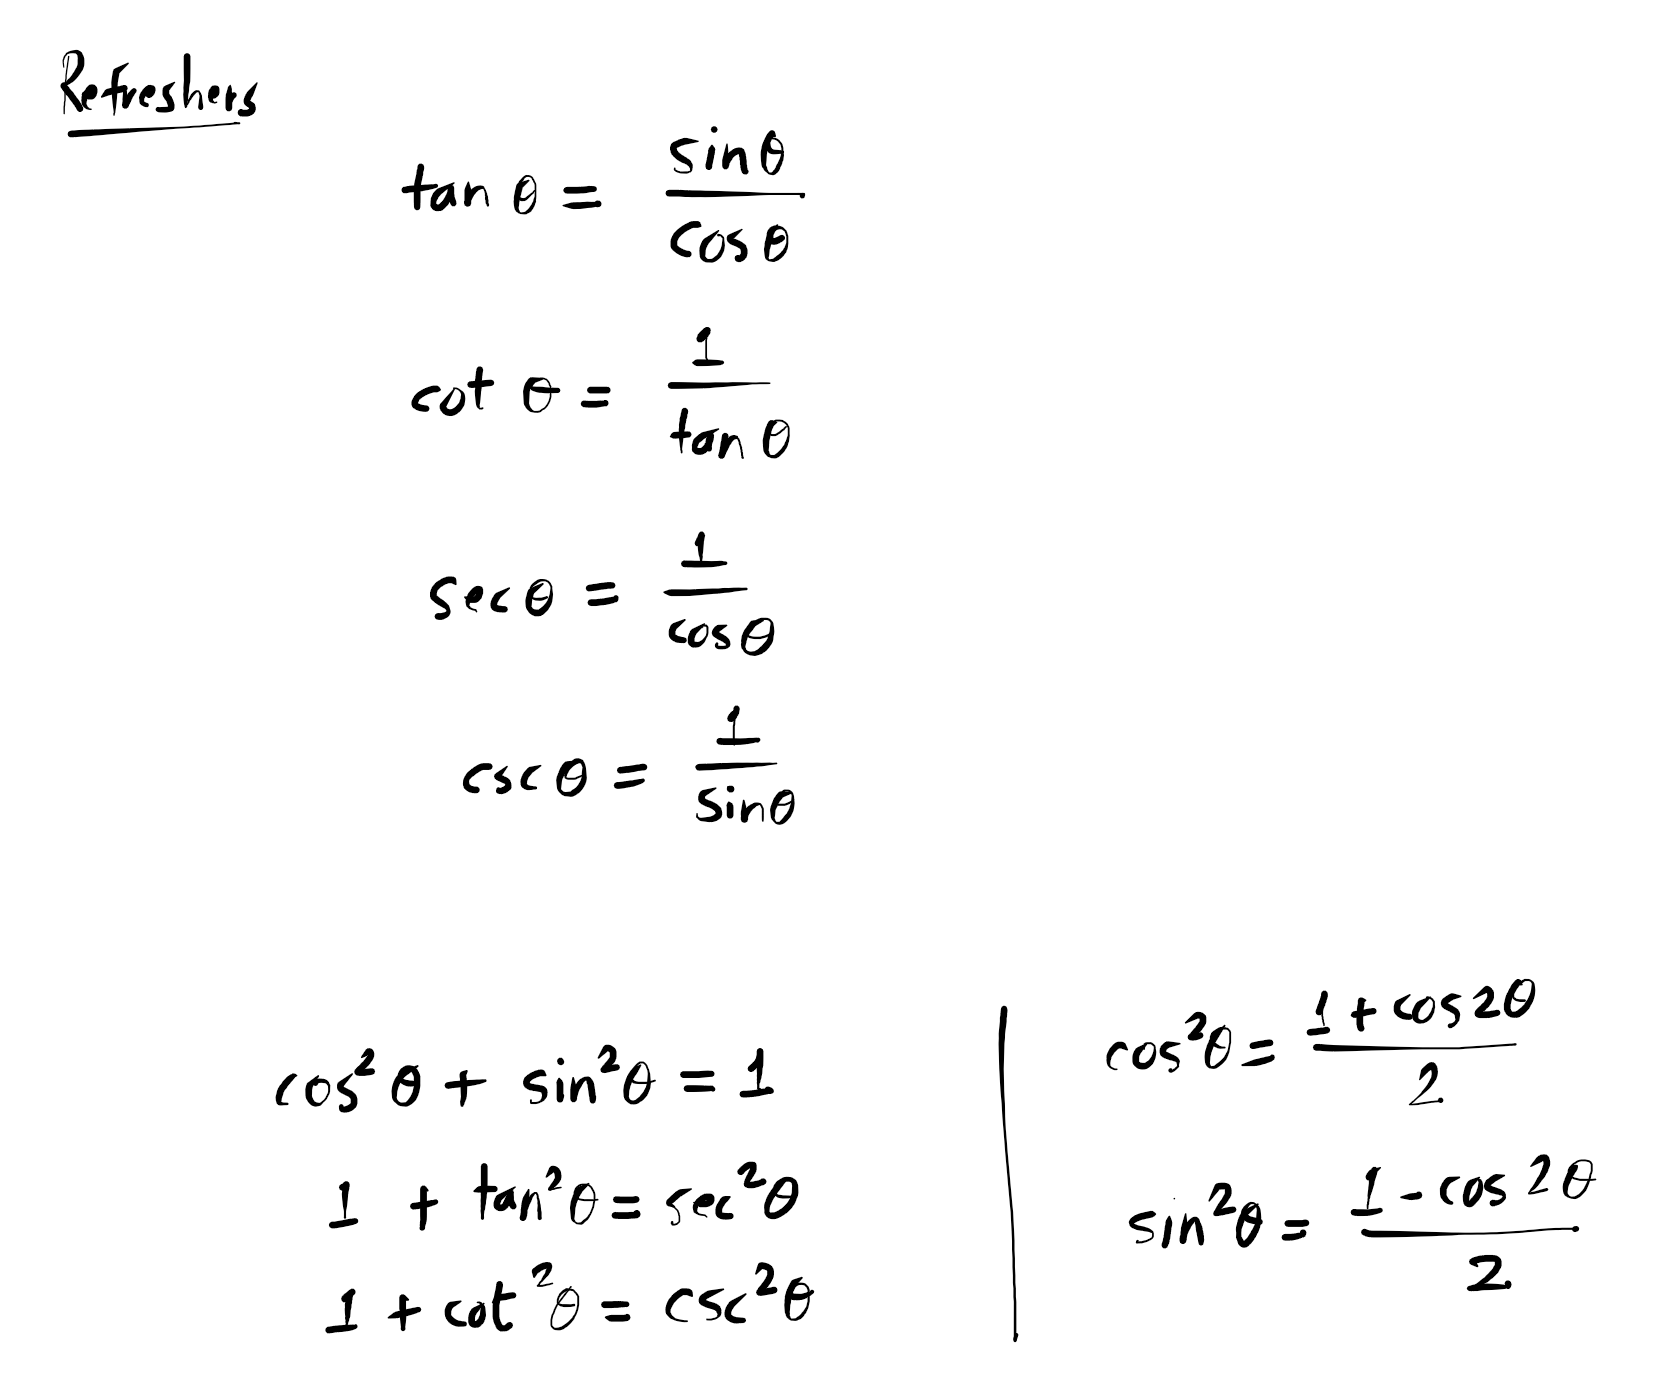 Refreshers
tan θ = sinθ / cosθ
cot θ = 1 / tan θ
sec θ = 1 / cosθ
csc θ = 1 / sinθ
cos² θ + sin²θ = 1
1 + tan²θ = sec²θ
1 + cot²θ = csc²θ
cos²θ = 1 + cos2θ / 2
sin²θ = 1 - cos 2θ / 2